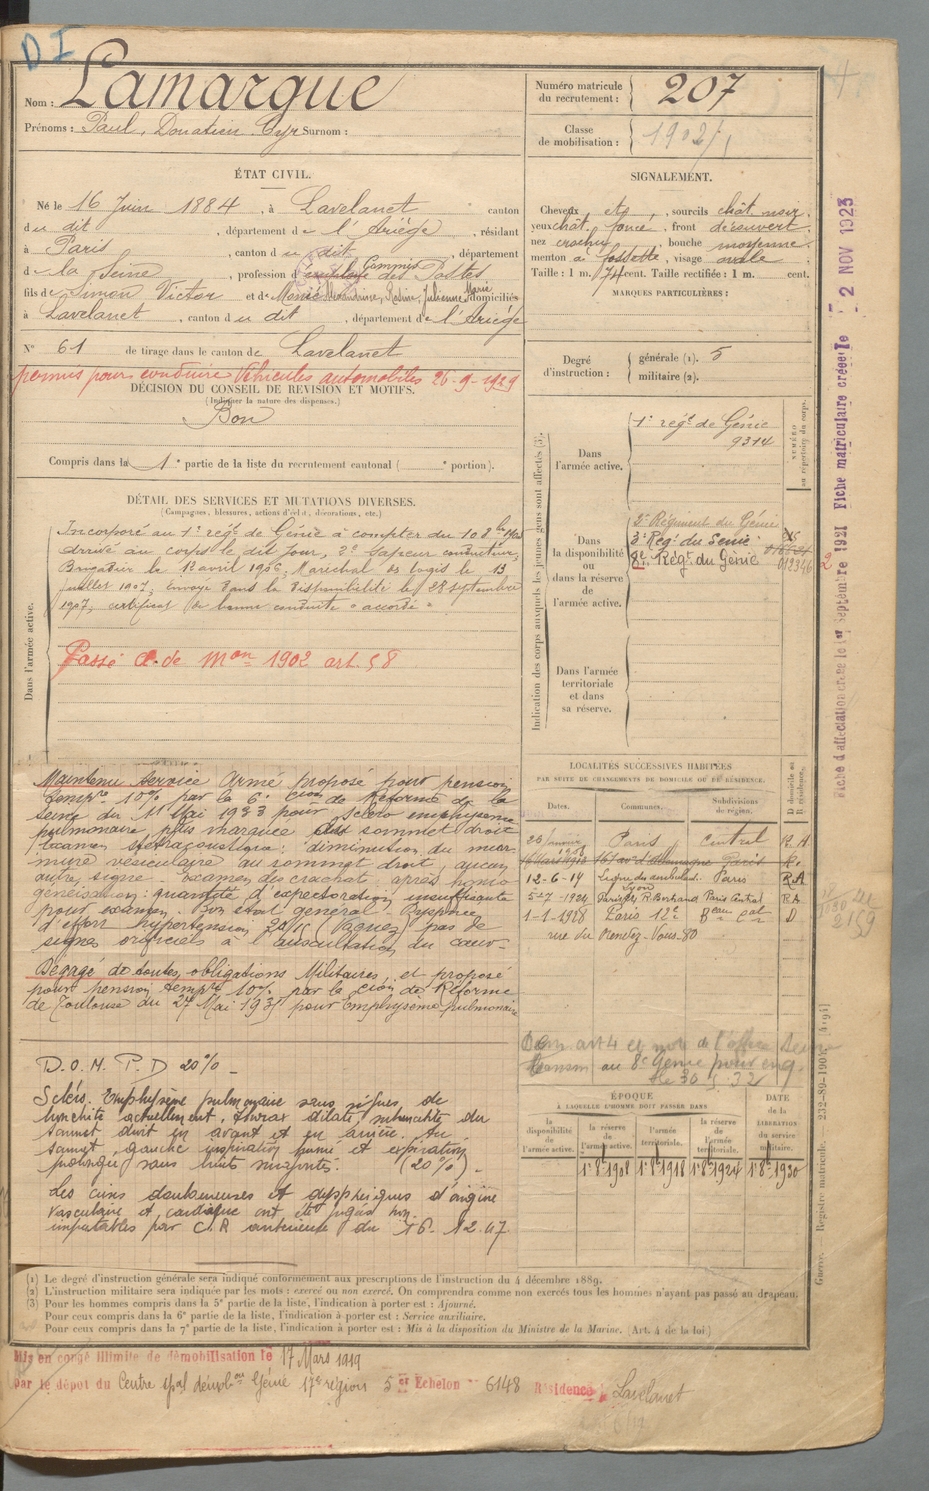 D I
Nom : Lamarque
Prénoms : Paul, Donatien Cyr Surnom :
Numéro matricule du recrutement : 207
Classe de mobilisation : 1902/1
ÉTAT CIVIL.
Né le 16 Juin 1884, à Lavelanet canton
du dit, département de l'Ariège, résidant
à Paris, canton du dit, département
de la Seine, profession d Commis des Postes
fils de Simon Victor et de Alexandrine, Rosine, Julienne Marie domiciliés
à Lavelanet, canton du dit, département de l'Ariège
N° 61 de tirage dans le canton de Lavelanet
permis pour conduire Véhicules automobiles 26-9-1929
DÉCISION DU CONSEIL DE REVISION ET MOTIFS.
(Indiquer la nature des dispenses.)
Bon
Compris dans la 1e partie de la liste du recrutement cantonal ( e portion).
SIGNALEMENT.
Cheveux , sourcils chât. noir
yeux chât. foncé, front découvert
nez crochu, bouche moyenne
menton à fossette, visage ovale
Taille : 1 m. 74 cent. Taille rectifiée : 1 m. cent.
MARQUES PARTICULIÈRES :
Degré d'instruction : générale (1). 5
militaire (2).
DÉTAIL DES SERVICES ET MUTATIONS DIVERSES.
(Campagnes, blessures, actions d'éclat, décorations, etc.)
Dans l'armée active.
Incorporé au 1er régt de Génie à compter du 10 8bre
arrivé au corps le dit jour, 2e Sapeur conducteur,
Brigadier le 12 avril 1906, Maréchal des logis le 13
juillet 1907, Envoyé dans la disponibilité le 28 septembre
1907, certificat de bonne conduite "accordé"
Passé Cl. de Mon 1902 art. 58
Indication des corps auxquels les jeunes gens sont affectés (3).
NUMÉRO au répertoire du corps.
Dans l'armée active.
1er régt de Génie
9314
Dans la disponibilité ou dans la réserve de l'armée active.
3e Régiment du Génie
3e Régt du Génie
8e Régt du Génie
Dans l'armée territoriale et dans sa réserve.
Fiche matriculaire créée le 2 NOV 1923
Fiche d'affectation créée le 1er Septembre 1921
Maintenu service Armé proposé pour pension
tempre 10% par la 6e Cion de Réforme de la
Seine du 11 Mai 1933 pour Scléro emphysème
pulmonaire, plus marquée au sommet droit
Examen stéthacoustique : diminution du mur-
mure vésiculaire au sommet droit, aucun
autre signe. Examen du crachat après homo
généisation : quantité d'expectoration insuffisante
pour examen. Bon état général. Dyspnée
d'effort hypertension (Vaquez) pas de
signes orificiels à l'auscultation du cœur.
Dégagé de toutes obligations Militaires, et proposé
pour pension tempre 10% par la Cion de Réforme
de Toulouse du 27 Mai 1937 pour Emphysème pulmonaire
D.O.M.P.D 20% _
Scléro. Emphysème pulmonaire sans signes de
bronchite actuellement, thorax dilaté, submatité du
sommet droit en avant et en arrière. Au
sommet gauche inspiration humée et expiration
prolongée sans bruits surajoutés. (20%) _
Les crises douloureuses et dyspnéiques d'origine
vasculaire et cardiaque ont été jugées non
imputables par C.R antérieure du 16. 12.47
LOCALITÉS SUCCESSIVES HABITÉES
PAR SUITE DE CHANGEMENTS DE DOMICILE OU DE RÉSIDENCE.
Dates. Communes. Subdivisions de région. D domicile ou R résidence.
23 janvier 1908 Paris Central R. A
16 Mars 1912 167 av. d'Allemagne Paris R.
12-6-14 Ligne des ambulants Paris R.A
Lyon
5-27-1924 Paris R. Bertrand Paris Central RA
1-1-1928 Paris 12e Beau Cal D
rue du Rendez-Vous-80
2159
ÉPOQUE
À LAQUELLE L'HOMME DOIT PASSER DANS
la disponibilité de l'armée active. la réserve de l'armée active. l'armée territoriale. la réserve de l'armée territoriale.
DATE de la LIBÉRATION du service militaire.
1er 8bre 1908 1er 8bre 1918 1er 8bre 1924 1er 8bre 1930
(1) Le degré d'instruction générale sera indiqué conformément aux prescriptions de l'instruction du 4 décembre 1889.
(2) L'instruction militaire sera indiquée par les mots : exercé ou non exercé. On comprendra comme non exercés tous les hommes n'ayant pas passé au drapeau.
(3) Pour les hommes compris dans la 5e partie de la liste, l'indication à porter est : Ajourné.
Pour ceux compris dans la 6e partie de la liste, l'indication à porter est : Service auxiliaire.
Pour ceux compris dans la 7e partie de la liste, l'indication à porter est : Mis à la disposition du Ministre de la Marine. (Art. 4 de la loi)
Guerre. — Registre matricule. 232-89-1903.
Mis en congé illimité de démobilisation le 17 Mars 1919
par le dépôt du Centre spal démobon Génie 17e région 5e Echelon n° 6148 Résidence à Lavelanet